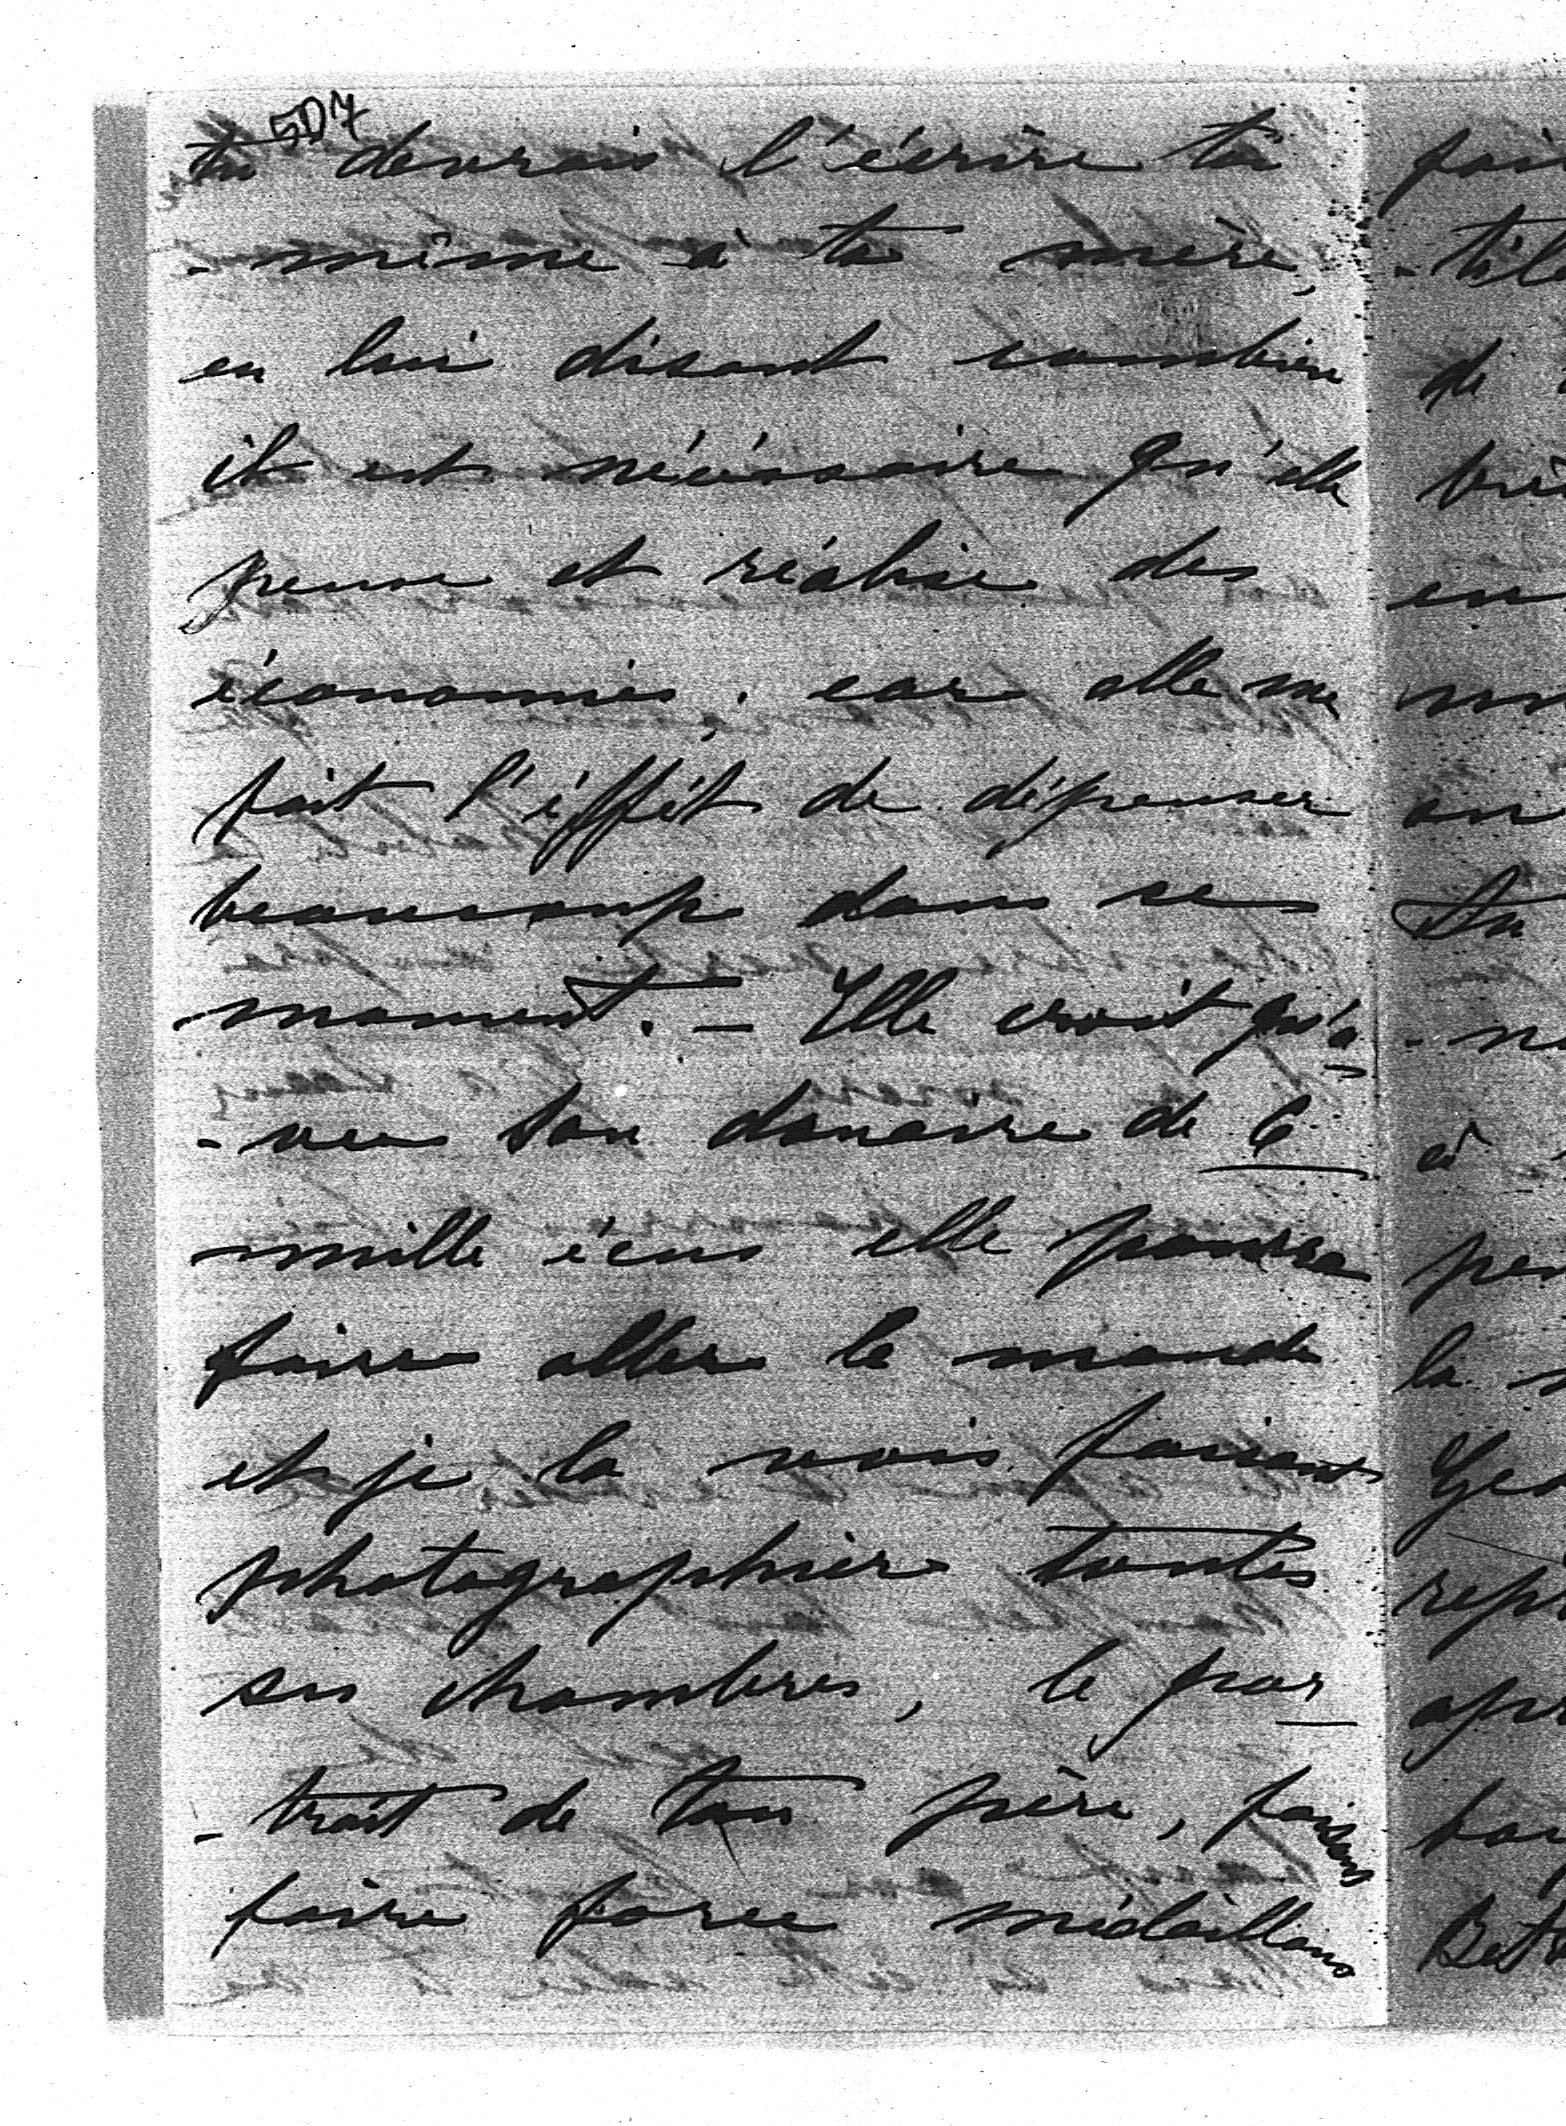 5D7
tu devrais l'écrire toi
-même à ta mère,
en lui disant combien
il est nécéssaire qu'elle
pense et réalise des
économies, car elle me
fait l'éffét de dépenser
beaucoup dans ce
moment. - Elle croit qu'a-
-vec son douaire de 6
mille écus elle pourra
faire aller le monde
et je la vois faisant
photographier toutes
ses chambres, le por-
-trait de ton père, faisant
faire force médaillons